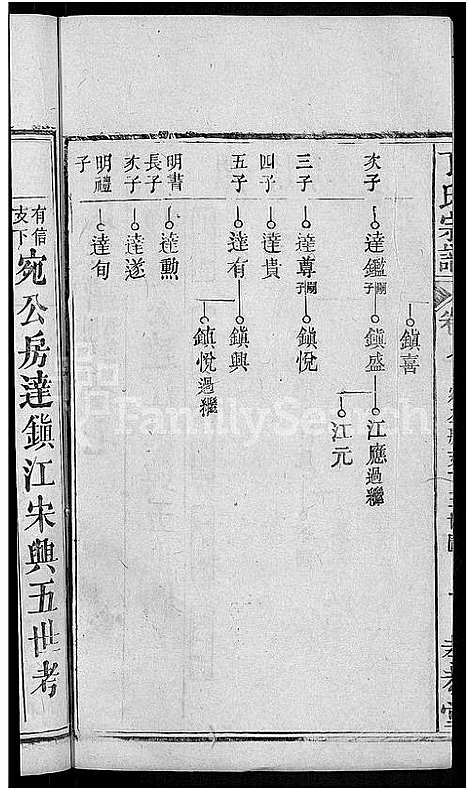 丁氏宗譜
卷
鎮喜
次子 達鑑 嗣子 鎮盛 江應過繼
江元
三子 達尊 嗣子 鎮悅
四子 達貴
五子 達有 鎮興
鎮悅過繼
明書長子 達勲
次子 達遂
明禮子 達旬
有信支下 宛公房達鎮江宋興五世考
FamilySearch